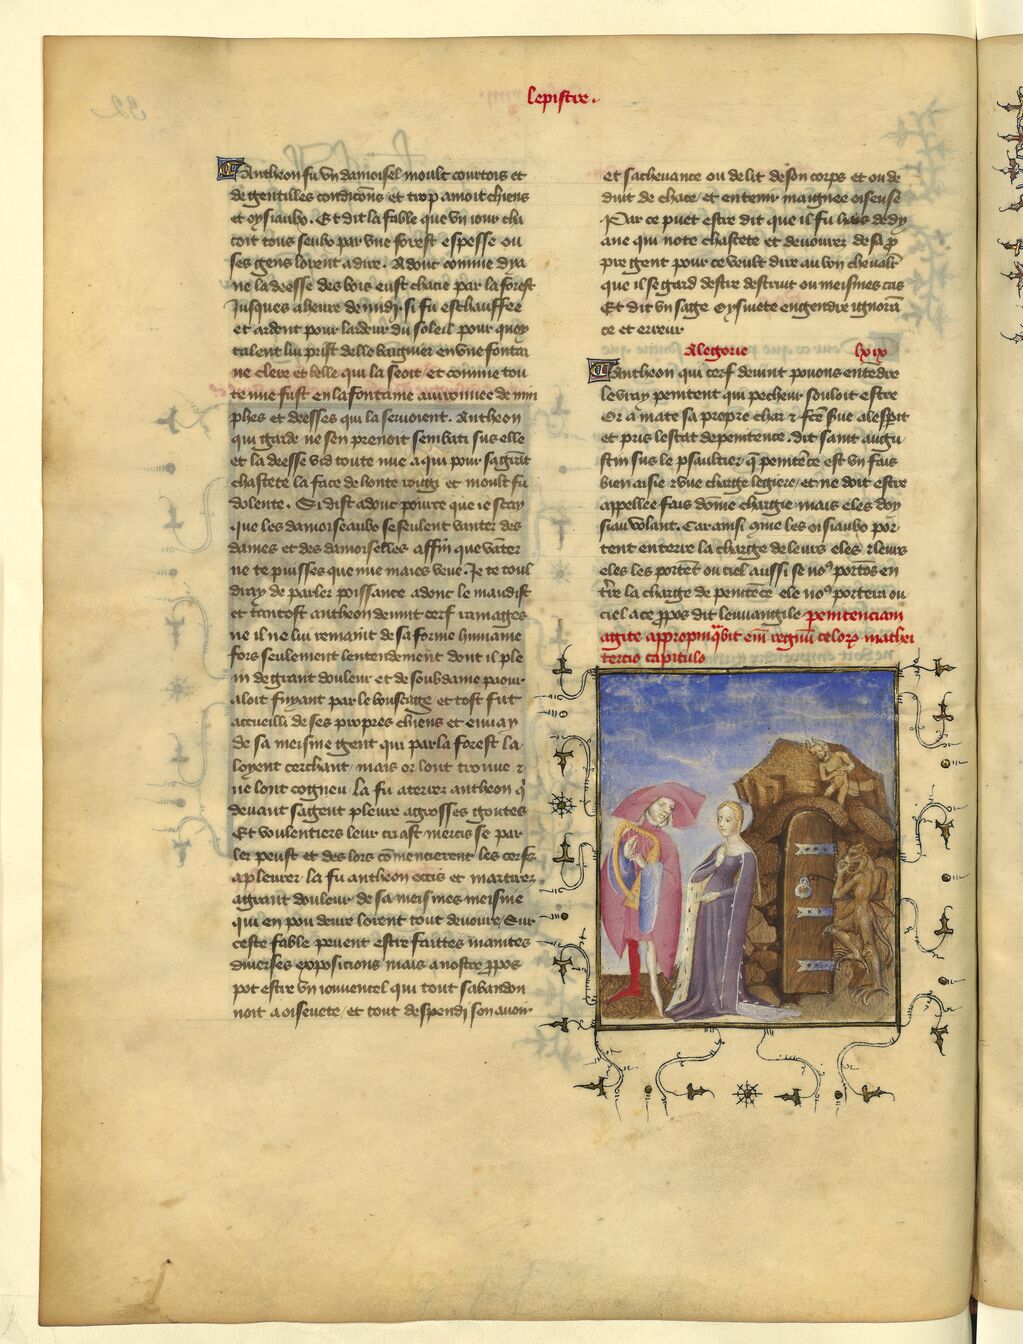 Lepistre.
Antheon fu un damoisel moult courtois et
de gentilles condicons et trop amoit chiens
et oysiaulx. Et dit la fable que un iour cha
coit tous seulx par une forest espesse ou
ses gens lorent adire. Adont comme dya
ne la deesse des bois eust chacie par la forest
Jusques a heure de midi. si fu eschauffee
et ardent pour lardeur du soleil pour quoy
talent lui prist delle baignier en une fontai
ne clere et belle qui la seoit et comme tou
te nue fust en la fontaine auironnee de nim
phes et deesses qui la seruoient. Antheon
qui garde ne sen prenoit sembati sus elle
et la deesse vid toute nue. a qui pour sa grāt
chastete la face de honte rougi et moult fu
dolente. Si dist adonc pource que ie scay
que les damoiseaulx se seulent vanter des
dames et des damoiselles affin que vāter
ne te puisses que nue maies veue. Je te toul
diray de parler poissance adonc le maudist
et tātost antheon deuint cerf ramages
ne il ne lui remaint de sa forme humaine
fors seulement lentendement dont il ple
in de grant douleur et de soubdaine paour
aloit fuyant par le bouscage et tost fut
accueilli de ses propres chiens et enuay
de sa meisme gent qui par la forest la
loyent cerchant mais or lont trouue &
ne lont cogneu la fu aterrez antheon q̄
deuant sa gent pleure a grosses goutes
Et voulentiers leur criast mercis se par
ler peust et des lors cōmencierent les cerfs
a pleurer la fu antheon occis et martirez
a grant douleur de sa meismes meisnie
qui en pou deure lorent tout deuoure. Sur
ceste fable peuent estre faittes maintes
diuerses expositions mais a nostre ꝓpos
pot estre un iouuencel qui tout sabandon
noit a oiseuete et tout despendi son auoir
et sa cheuance ou delit de son corps et ou de
duit de chace et entenir maignee oiseuse
Par ce puet estre dit que il fu hais de dy
ane qui note chastete et deuourez de sa ꝓ
pre gent pour ce veult dire au bon cheualr̄
que il se gard destre destruit ou meismes cas
Et dit un sage oysiuete engendre ignorā
ce et erreur
Alegorie lxix
Antheon qui cerf deuint pouons entēdre
le vray penitent qui pecheur souloit estre
Or a mate sa propre char & fcē sue a lesꝑit
et pris lestat de penitence. dit saint augu
stin sus le psaultier q̄ penitēce est un fais
bien aisie & une charge legiere. et ne doit estre
appellee fais dōme chargie mais eles doy
siau volant. Car ainsi come les oisiaulx por
tent en terre la charge de leurs eles & leurs
eles les portēt ou ciel aussi se nous portōs en
tr̄e la charge de penitēce ele nous portera ou
ciel a ce ꝓpos dit leuuangile penitenciam
agite appropinq̄bit eni regnū celoꝝ mathei
tercio capitulo